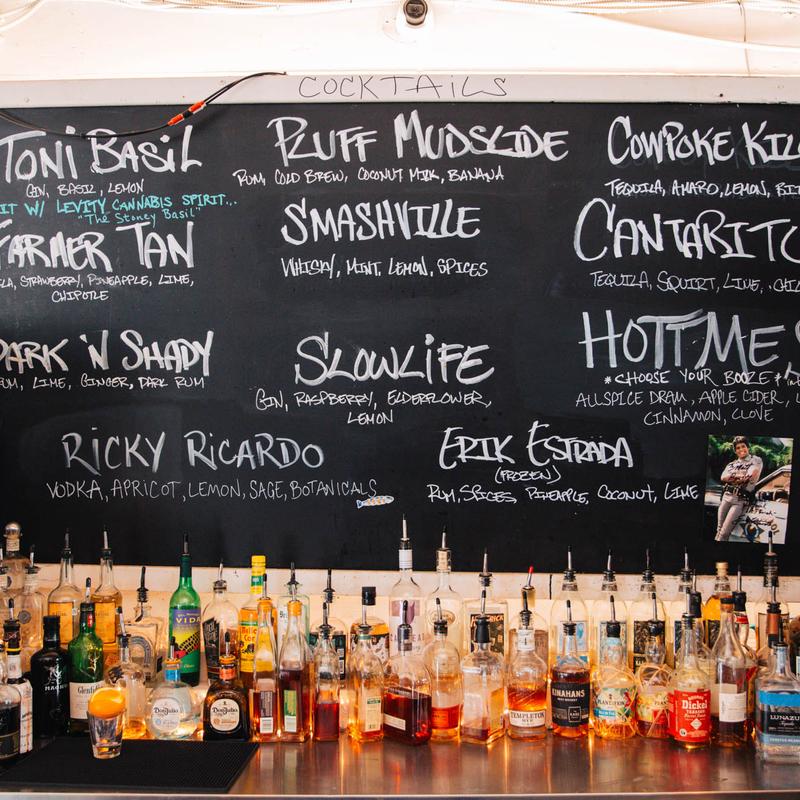 COCKTAILS
TONI BASIL
GIN, BASIL, LEMON
IT W/ LEVITY CANNABIS SPIRIT...
"The Stoney Basil"
FARMER TAN
STRAWBERRY, PINEAPPLE, LIME,
CHIPOTLE
DARK 'N SHADY
RUM, LIME, GINGER, DARK RUM
PLUFF MUDSLIDE
RUM, COLD BREW, COCONUT MILK, BANANA
SMASHVILLE
WHISKY, MINT, LEMON, SPICES
SLOWLIFE
GIN, RASPBERRY, ELDERFLOWER,
LEMON
COWPOKE
TEQUILA, AMARO, LEMON,
CANTARITO
TEQUILA, SQUIRT, LIME,
HOTT ME
* CHOOSE YOUR BOOZE *
ALLSPICE DRAM, APPLE CIDER,
CINNAMON, CLOVE
RICKY RICARDO
VODKA, APRICOT, LEMON, SAGE, BOTANICALS
ERIK ESTRADA
(FROZEN)
RUM, SPICES, PINEAPPLE, COCONUT, LIME
VIDA
Don Julio
Don Julio
TEMPLETON
RYE
KINAHANS
PLANTATION
Dickel